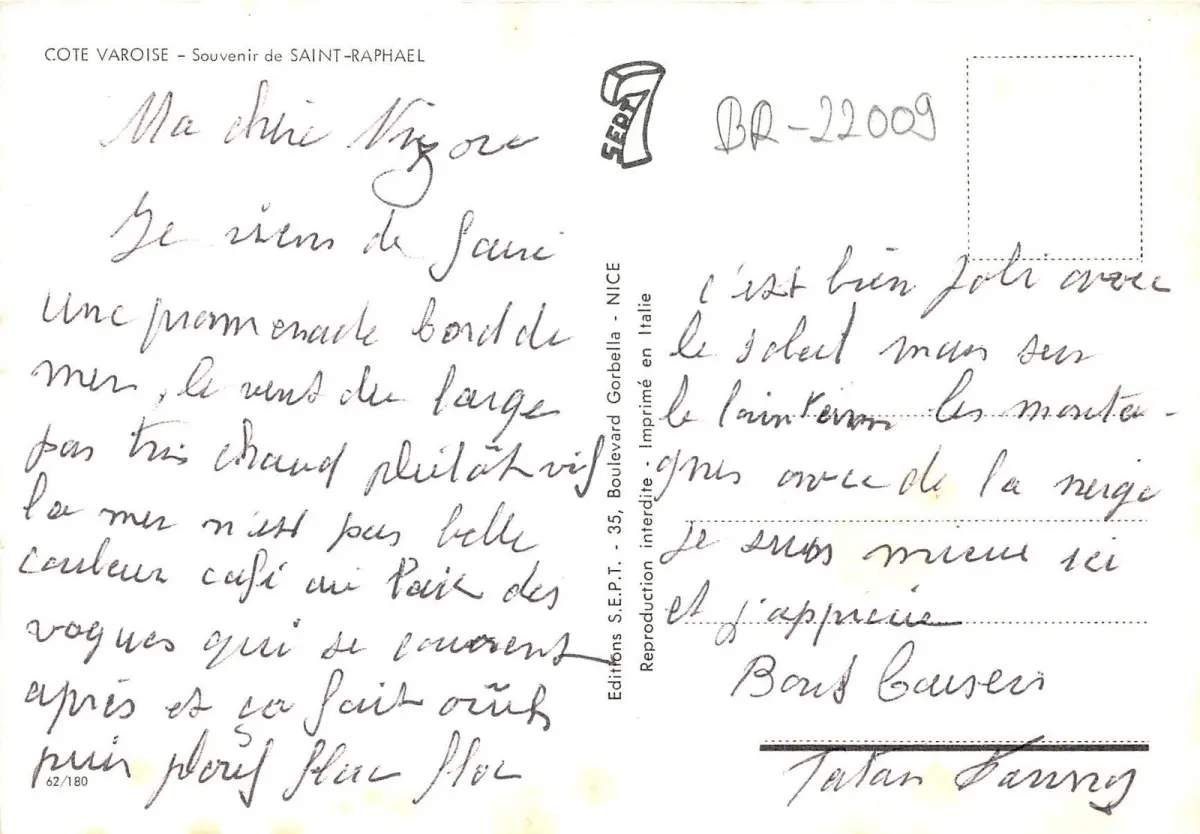 COTE VAROISE - Souvenir de SAINT-RAPHAEL
Ma chère
Je viens de faire
une promenade bord de
mer, le vent du large
pas très chaud plutôt vif
la mer n'est pas belle
couleur café au lait des
vagues qui se courent
après et ça fait
puis plouf flac floc
62/180
SEPT 7
BR-22009
Editions S.E.P.T. - 35, Boulevard Gorbella - NICE
Reproduction interdite - Imprimé en Italie
c'est bien joli avec
le soleil mais sur
le lointain les monta-
gnes avec de la neige
je suis mieux ici
et j'apprécie
Bons baisers
Tatan